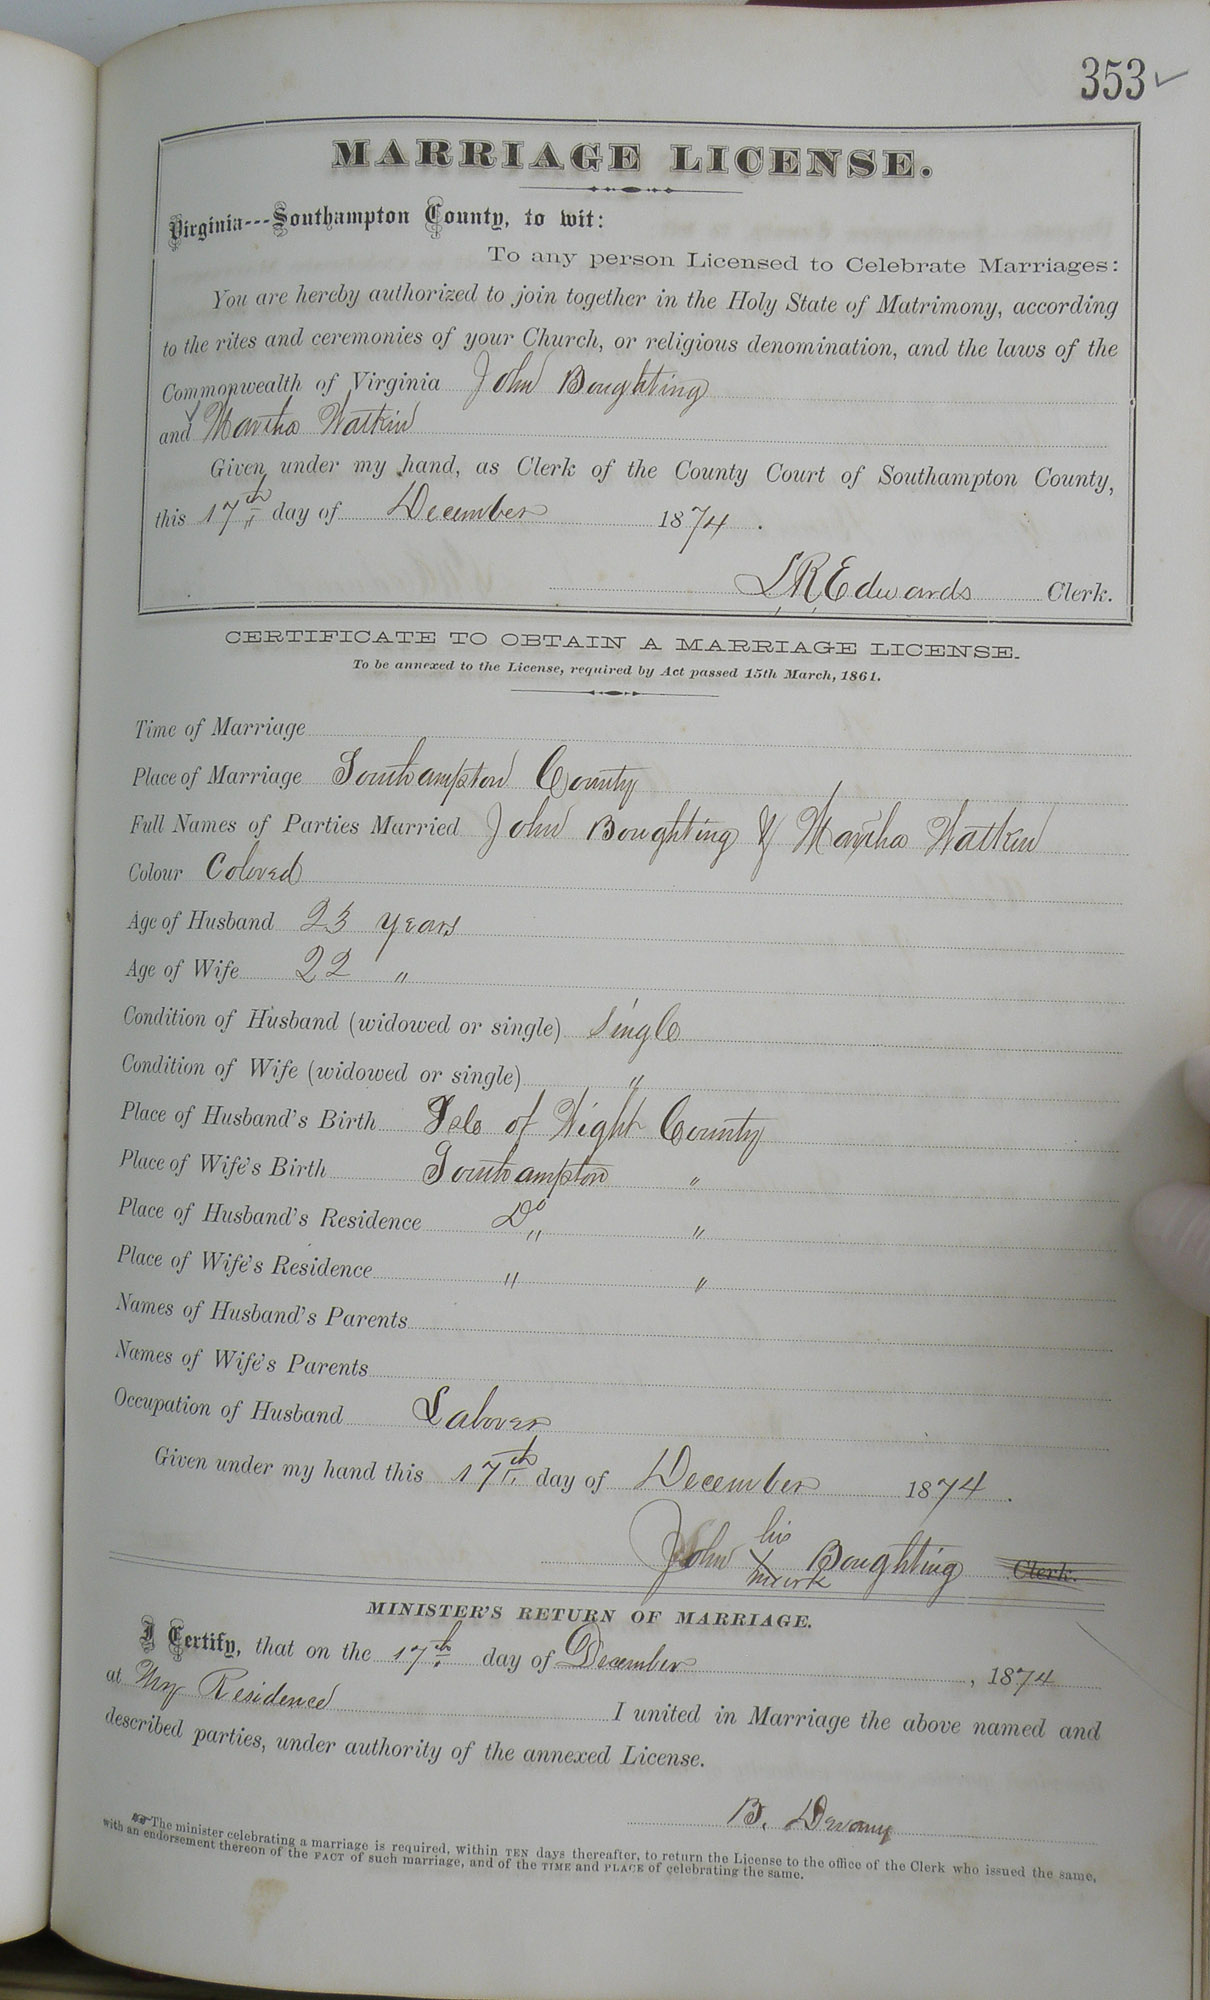 353 ✓
MARRIAGE LICENSE.
Virginia---Southampton County, to wit:
To any person Licensed to Celebrate Marriages:
You are hereby authorized to join together in the Holy State of Matrimony, according
to the rites and ceremonies of your Church, or religious denomination, and the laws of the
Commonwealth of Virginia John Boughting
and Martha Watkin
Given under my hand, as Clerk of the County Court of Southampton County,
this 17th day of December 1874.
L. R. Edwards Clerk.
CERTIFICATE TO OBTAIN A MARRIAGE LICENSE.
To be annexed to the License, required by Act passed 15th March, 1861.
Time of Marriage
Place of Marriage Southampton County
Full Names of Parties Married John Boughting & Martha Watkin
Colour Colored
Age of Husband 23 years
Age of Wife 22 "
Condition of Husband (widowed or single) Single
Condition of Wife (widowed or single) "
Place of Husband's Birth Isle of Wight County
Place of Wife's Birth Southampton "
Place of Husband's Residence Do "
Place of Wife's Residence " "
Names of Husband's Parents
Names of Wife's Parents
Occupation of Husband Laborer
Given under my hand this 17th day of December 1874.
his
John X Boughting Clerk.
mark
MINISTER'S RETURN OF MARRIAGE.
I Certify, that on the 17th day of December, 1874
at My Residence I united in Marriage the above named and
described parties, under authority of the annexed License.
B. Devany
☞ The minister celebrating a marriage is required, within TEN days thereafter, to return the License to the office of the Clerk who issued the same,
with an endorsement thereon of the FACT of such marriage, and of the TIME and PLACE of celebrating the same.